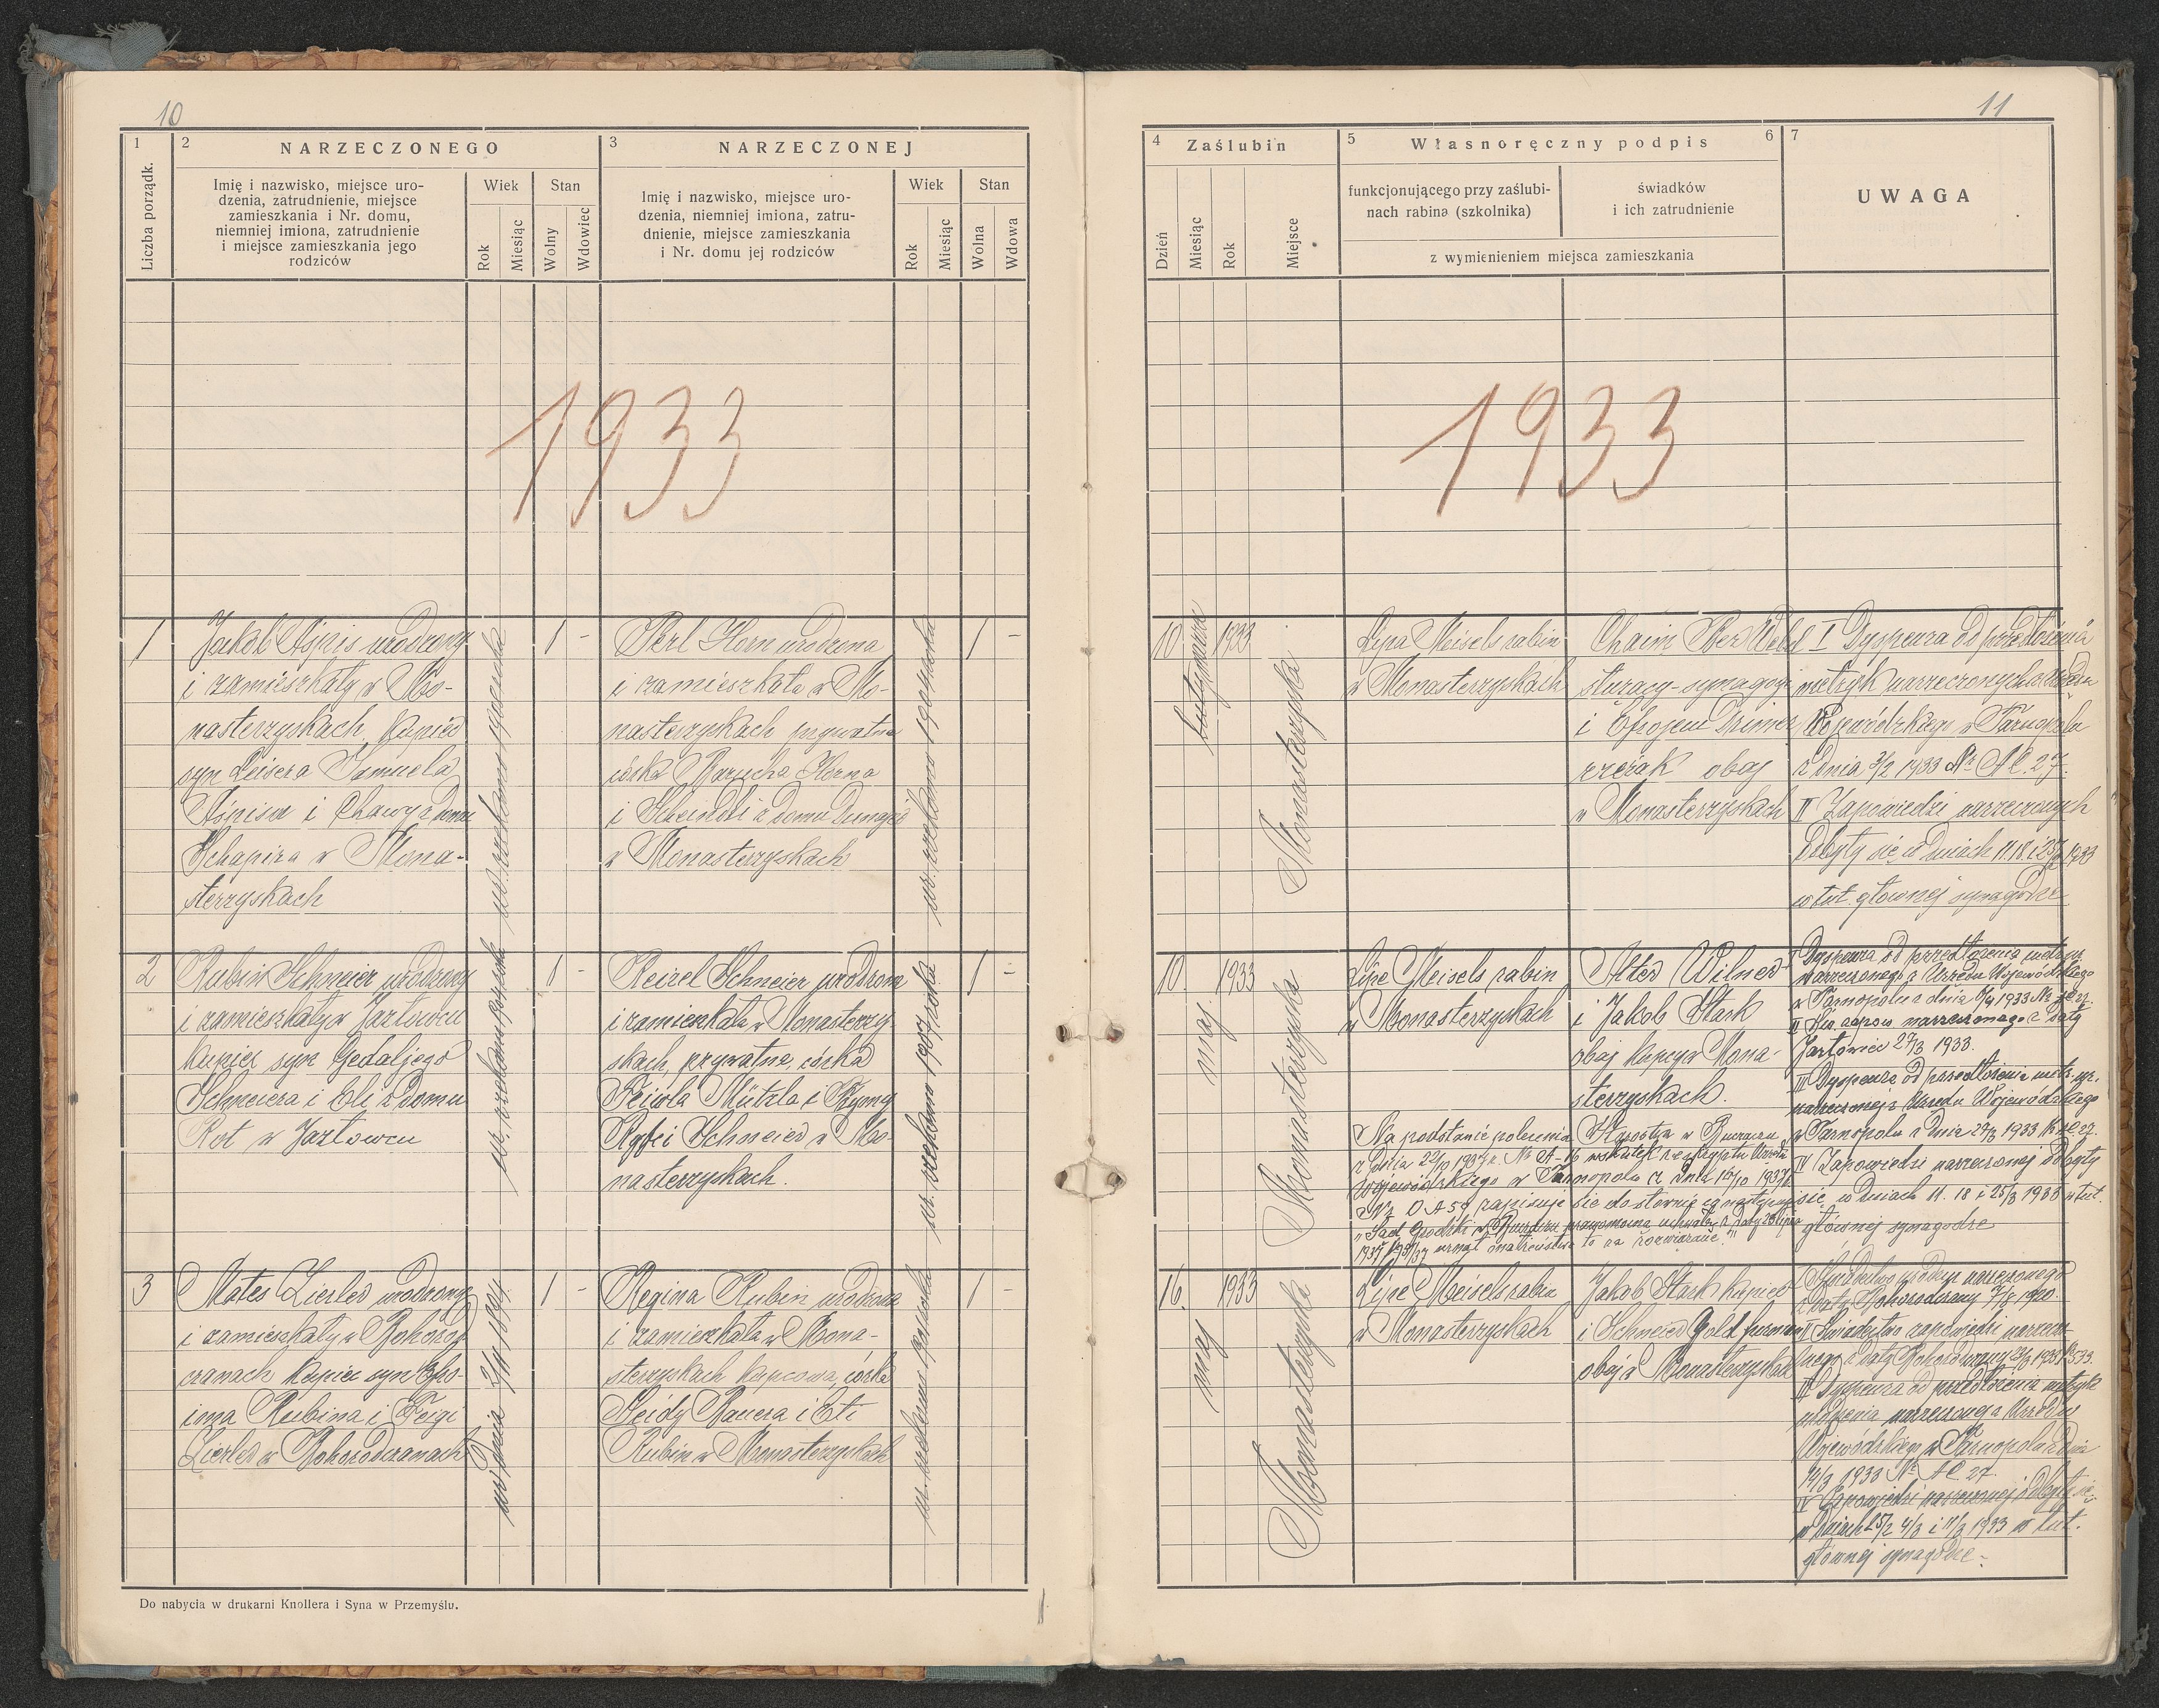 10
1
2
NARZECZONEGO
3
NARZECZONEJ
Liczba porządk.
Imię i nazwisko, miejsce uro-
dzenia, zatrudnienie, miejsce
zamieszkania i Nr. domu,
niemniej imiona, zatrudnienie
i miejsce zamieszkania jego
rodziców
Wiek
Stan
Rok
Miesiąc
Wolny
Wdowiec
Imię i nazwisko, miejsce uro-
dzenia, niemniej imiona, zatru-
dnienie, miejsce zamieszkania
i Nr. domu jej rodziców
Wiek
Stan
Rok
Miesiąc
Wolna
Wdowa
1933
1
Jakób Aspis urodzony
i zamieszkały w Mo-
nasterzyskach, kupiec
syn Leisera Samuela
Aspisa i Chawy z domu
Schapira w Mona-
sterzyskach
1 -
Perl Horn urodzona
i zamieszkała w Mo-
nasterzyskach prywatna
córka Barucha Horna
i Scheindli z domu
w Monasterzyskach
1 -
2
Rubin Schneier urodzony
i zamieszkały w Jazłowcu
kupiec syn Gedaljego
Schneiera i Eli z domu
Rot w Jazłowcu
1 -
Reizel Schneier urodzona
i zamieszkała w Monasterzy-
skach, prywatna, córka
Feiwla Mützla i
Ryfki Schneier w Mo-
nasterzyskach.
1 -
3
Mates Zierler urodzony
i zamieszkały w Bohorod-
czanach kupiec syn Efro-
ima Rubina i Feigi
Zierler w Bohorodczanach
1 -
Regina Rubin urodzona
i zamieszkała w Mona-
sterzyskach kupcowa, córka
Rubin w Monasterzyskach
1 -
Do nabycia w drukarni Knollera i Syna w Przemyślu.
11
4
Zaślubin
5
Własnoręczny podpis
6
7
Dzień
Miesiąc
Rok
Miejsce
funkcjonującego przy zaślubi-
nach rabina (szkolnika)
świadków
i ich zatrudnienie
z wymienieniem miejsca zamieszkania
UWAGA
1933
10.
1933
Monasterzyska
Lipa Meisels rabin
w Monasterzyskach
Chaim Ber
służący synagogi
i Efrojem
rzezak obaj
w Monasterzyskach
I Dyspenza od przedłożenia
metryk narzeczonych
Wojewódzkiego w Tarnopolu
z dnia 3/2 1933 Nr AC. 27.
II Zapowiedzi narzeczonych
odbyły się w dniach 11. 18. i 25/2 1933
w tut. głównej synagodze
10.
maj
1933
Monasterzyska
Lipe Meisels rabin
w Monasterzyskach
Alter Wilner
i Jakob Stark
obaj kupcy w Mona-
sterzyskach.
Dyspenza od przedłożenia metr. ur.
narzeczonego z Urzędu Wojewódzkiego
w Tarnopolu z dnia 1933 Nr
narzeczonego z daty
Jazłowiec 27/3 1933.
III Dyspenza od przedłożenia metr. ur.
narzeczonej z Urzędu Wojewódzkiego
w Tarnopolu z dnia 1933
IV Zapowiedzi narzeczonej odbyły
się w dniach 11. 18 i 25/3 1933 w tut.
głównej synagodze
Na podstawie polecenia Starostwa w Buczaczu
z dnia 1937 r. Nr wskutek reskryptu Urzędu
Wojewódzkiego w Tarnopolu z dnia 1937
zapisuje się dosłownie co następuje
"Sąd Grodzki w Buczaczu prawomocną uchwałą z daty
uznał małżeństwo to za rozwiązane."
16.
maj
1933
Monasterzyska
Lipe Meisels rabin
w Monasterzyskach
Jakob Stark kupiec
i Schneier Gold
obaj w Monasterzyskach
Świadectwo urodzin narzeczonego
z daty Bohorodczany
II Świadectwo zapowiedzi narzeczo-
nego z daty Bohorodczany
III Dyspenza od przedłożenia metryk
urodzenia narzeczonej z Urzędu
Wojewódzkiego w Tarnopolu z dnia
14/3 1933 Nr AC 27.
IV Zapowiedzi narzeczonej odbyły się
w dniach 25/2 4/3 i 11/3 1933 w tut.
głównej synagodze.